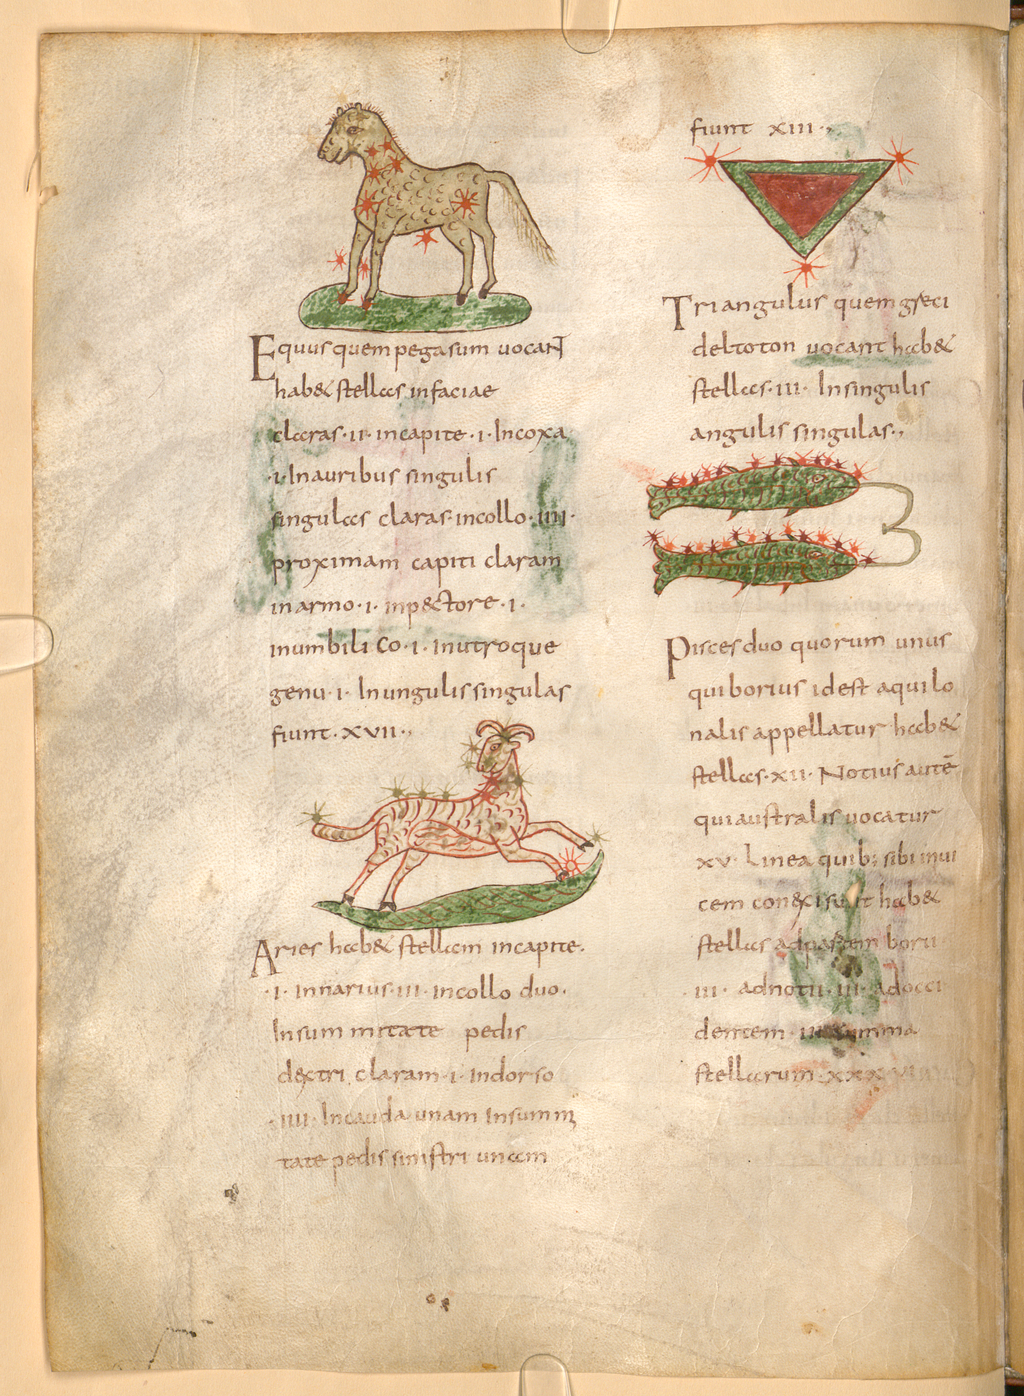 Equus quem pegasum uocant
hab& stellas in faciae
claras · II · in capite · I · In coxa
· I · In auribus singulis
singulas claras · in collo · IIII ·
proximam capiti claram
in armo · I · in p&ctore · I ·
in umbilico · I · in utroque
genu · I · In ungulis singulas
fiunt · XVII ·,
Aries hab& stellam in capite ·
· I · In narius · III · in collo duo ·
In summitate pedis
dextri claram · I · In dorso
· IIII · In cauda unam In summi
tate pedis sinistri unam
fiunt XIII ·,
Triangulus quem greci
deltoton uocant hab&
stellas · III · In singulis
angulis singulas ·,
Pisces duo quorum unus
qui borius idest aquilo
nalis appellatur hab&
stellas · XII · Notius autē
qui australis uocatur
XV · Linea quib; sibi inui
cem conexi sunt hab&
stellas ad partem borii
III · ad notii · III · ad occi
dentem · III summa
stellarum · XXXVI